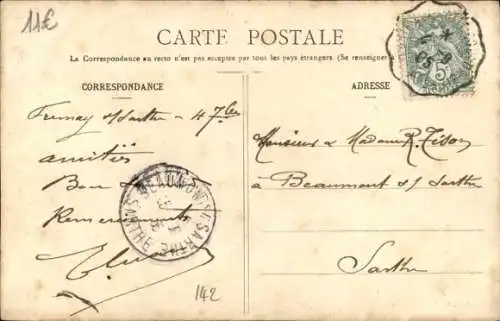 11€
CARTE POSTALE
La Correspondance au recto n'est pas acceptée par tous les pays étrangers. (Se renseigner
CORRESPONDANCE
ADRESSE
Fresnay s/Sarthe - 4 7bre
amitiés
Bon
Remerciements
Monsieur & Madame R. Tison
à Beaumont s/ Sarthe
Sarthe
BEAUMONT-S-SARTHE
5
142